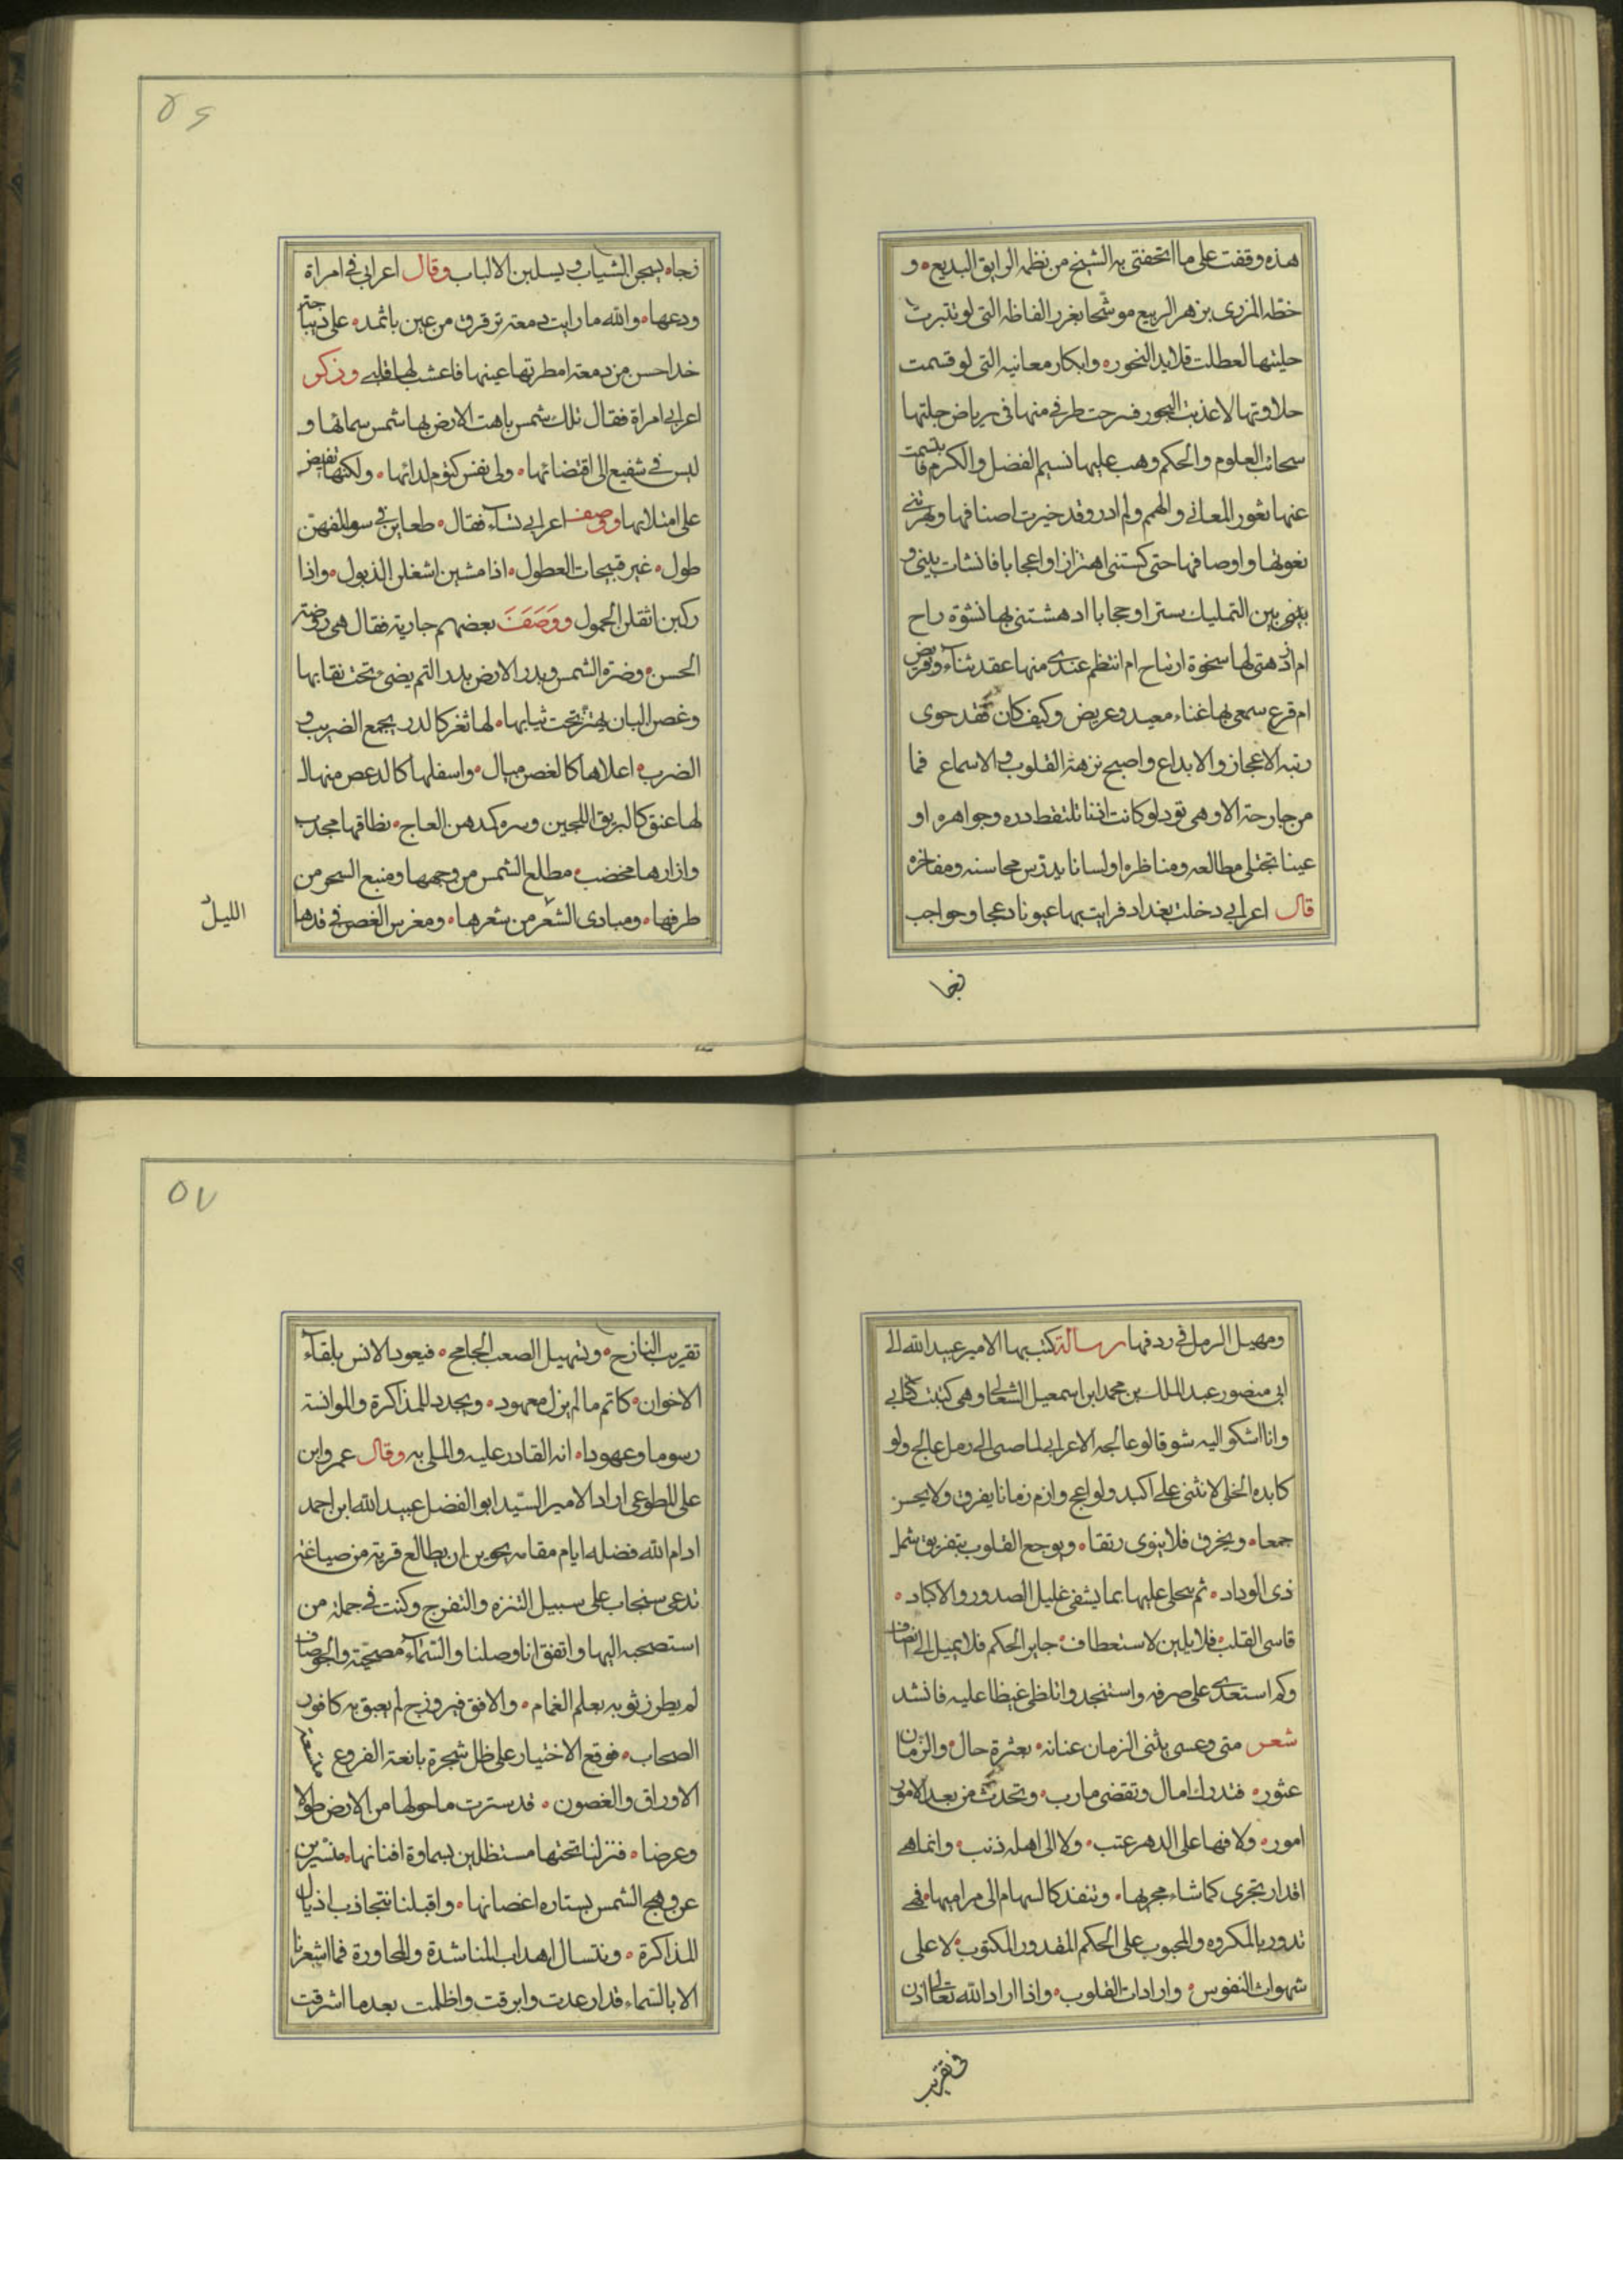 هذه وقفت على ما اتحفتنى به الشيخ من نظمه الرايق البديع و
خطه المزرى بزهر الربيع موشحا بغرر الفاظه التى لو تدبرت
حليتها لعطلت قلايد النحور وابكار معانيه التى لو قسمت
حلاوتها لاعذبت البحور فسرحت طرفى منها فى رياض جلتها
سحائب العلوم والحكم وهب عليها نسيم الفضل والكرم فابتسمت
عنها ثغور المعانى والهمم ولم ادر وقد خيرت اصنافها وبهرتنى
نعوتها واوصافها حتى كستنى اهتزازا واعجابا فانشات بينى و
بينى بين التمليك سترا وحجابا ادهشتنى بها نشوة راح
ام ازدهتنى لها سخوة ارتياح ام انتظم عندى منها عقد ثناء وقريض
ام قرع سمعى بها غناء معبد وغريض وكيف كان فقد حوى
رتبه الاعجاز والابداع واصبح نزهة القلوب والاسماع فما
من جارحة الا وهى تود لو كانت اذنا تلتقط درره وجواهره او
عينا تجتلى مطالعه ومناظره او لسانا يدرس محاسنه ومفاخره
قال اعرابى دخلت بغداد فرايت بها عيونا دعجا وحواجب
زجا
زجاه يسحبن الثياب ويسلبن الالباب وقال اعرابى فى امراة
ودعها والله ما رايت دمعة ترقرق من عين باثمد على ديباجة
خد احسن من دمعة امطرتها عينها فاعشب لها قلبى وذكر
اعرابى امراة فقال تلك شمس باهت الارض بها شمس سمائها و
ليس فى شفيع الى اقتضائها ولى نفس كتوم لدائها ولكنها تفيض
على امتلائها ووصف اعرابى نساء فقال ظعاين فى سوالفهن
طول غير قبيحات العطول اذا مشين اشغلن الذيول واذا
ركبن اثقلن الحمول ووصف بعضهم جارية فقال هى روضة
الحسن وضرة الشمس وبدر الارض بدر التم يضى تحت نقابها
وغصن البان يهتز تحت ثيابها لها ثغر كالدر يجمع الضريب و
الضرب اعلاها كالغصن ميال واسفلها كالدعص منهال
لها عنق كابريق اللجين وسره كمدهن العاج نطاقها مجدب
وازارها مخضب مطلع الشمس من وجهها ومنبع السحر من
طرفها ومبادى الشعر من شعرها ومغرس الغصن فى قدها
الليل
ومهيل الرمل فى ردفها رسالة كتب بها الامير عبيد الله الى
ابى منصور عبد الملك بن محمد ابن اسمعيل الثعالبى وهى كتبت كتابى
وانا اشكو اليه شوقا لو عالجه الاعرابى لما صبى الى رمل عالج ولو
كابده الخلى لانثنى على اكبد ولواعج وازم زمانا يفرق ولا يحسن
جمعا ويخرق فلا ينوى رتقا ويوجع القلوب بتفريق شمل
ذى الوداد ثم يبخل عليها بما يشفى غليل الصدور والاكباد
قاسى القلب فلا يلين لاستعطاف جاير الحكم فلا يميل الى انصاف
وكم استعدى على صرفه واستنجد واتلظى غيظا عليه فانشد
شعر متى وعسى يثنى الزمان عنانه بعثرة حال والزمان
عثور فتدرك امال وتقضى مارب وتحدث من بعد الامور
امور ولا فيها على الدهر عتب ولا الى اهله ذنب وانما هى
اقدار تجرى كما شاء مجريها وتنفد كالسهام الى مراميها فهى
تدور بالمكروه والمحبوب على الحكم المقدور المكتوب لا على
شهوات النفوس وارادات القلوب واذا اراد الله تعالى اذن
فى تقريب
تقريب النازح وتسهيل الصعب الجامح فيعود الانس بلقاء
الاخوان كاتم ما لم يزل معهود ويجدد للمذاكرة والموانسة
رسوما وعهودا انه القادر عليه والملى به وقال عمرو ابن
على المطوعى اراد الامير السيد ابو الفضل عبيد الله ابن احمد
ادام الله فضله ايام مقامه بجوين ان يطالع قرية من ضياعه
تدعى سنجاب على سبيل التنزه والتفرج وكنت فى جملة من
استصحبه اليها واتفق انا وصلنا والسماء مصحية والجو صاف
لم يطرز ثوبه بعلم الغمام والافق فيروزج لم يعبق به كافور
السحاب فوقع الاختيار على ظل شجرة يانعة الفروع
الاوراق والغصون قد سترت ما حولها من الارض طولا
وعرضا فنزلنا تحتها مستظلين بسماوة افنانها متسترين
عن وهج الشمس بستاره اغصانها واقبلنا نتجاذب اذيال
المذاكرة ونتسال اهداب المناشدة والمحاورة فما شعرنا
الا بالسماء قد ارعدت وابرقت واظلمت بعد ما اشرقت
۵۶
۵۷